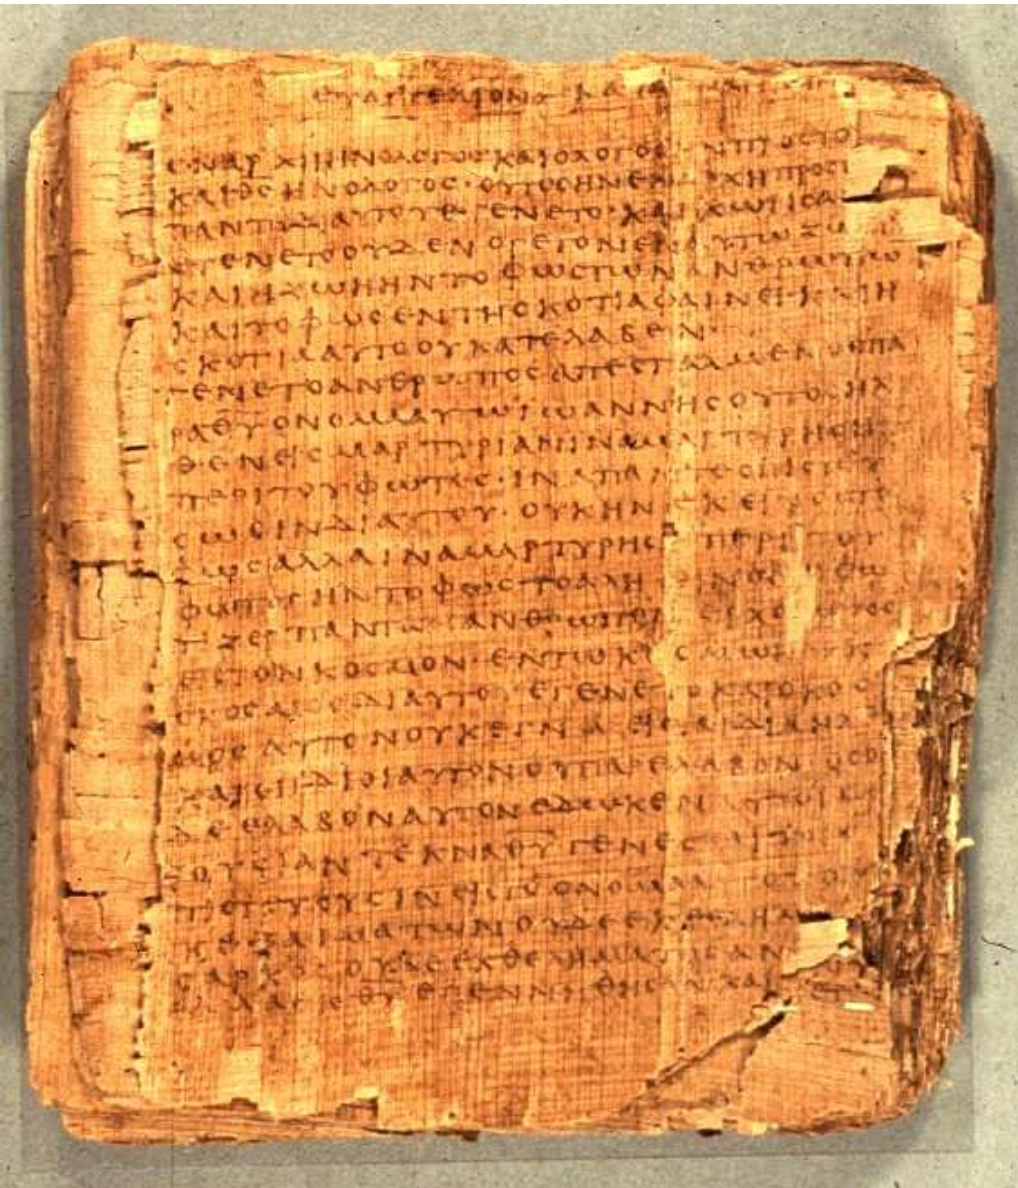 ΕΥΑΓΓΕΛΙΟΝ ΚΑΤΑ
ΕΝ ΑΡΧΗ ΗΝ Ο ΛΟΓΟΣ ΚΑΙ Ο ΛΟΓΟΣ
ΚΑΙ ΘΣ ΗΝ Ο ΛΟΓΟΣ · ΟΥΤΟΣ ΗΝ ΕΝ ΑΡΧΗ ΠΡΟΣ
ΠΑΝΤΑ ΔΙ ΑΥΤΟΥ ΕΓΕΝΕΤΟ · ΚΑΙ ΧΩΡΙΣ
ΕΓΕΝΕΤΟ ΟΥΔΕΝ Ο ΓΕΓΟΝΕΝ ΑΥΤΩ ΖΩ
ΚΑΙ Η ΖΩΗ ΗΝ ΤΟ ΦΩΣ ΤΩΝ ΑΝΘΡΩΠΩ
ΚΑΙ ΤΟ ΦΩΣ ΕΝ ΤΗ ΣΚΟΤΙΑ ΦΑΙΝΕΙ · ΚΑΙ Η
ΣΚΟΤΙΑ ΑΥΤΟ ΟΥ ΚΑΤΕΛΑΒΕΝ ·
ΓΕΝΕΤΟ ΑΝΘΡΩΠΟΣ ΑΠΕΣΤΑΛΜΕΝΟΣ ΠΑ
ΡΑ ΘΥ ΟΝΟΜΑ ΑΥΤΩ ΙΩΑΝΝΗΣ ΟΥΤΟΣ ΗΛ
ΘΕΝ ΕΙΣ ΜΑΡΤΥΡΙΑΝ ΙΝΑ ΜΑΡΤΥΡΗΣΗ
ΠΕΡΙ ΤΟΥ ΦΩΤΟΣ · ΙΝΑ ΠΑΝΤΕΣ ΠΙΣΤΕΥ
ΣΩΣΙΝ ΔΙ ΑΥΤΟΥ · ΟΥΚ ΗΝ ΕΚΕΙΝΟΣ ΤΟ
ΦΩΣ ΑΛΛΑ ΙΝΑ ΜΑΡΤΥΡΗΣΗ ΠΕΡΙ ΤΟΥ
ΦΩΤΟΣ ΗΝ ΤΟ ΦΩΣ ΤΟ ΑΛΗΘΙΝΟΝ Ο ΦΩ
ΤΙΖΕΙ ΠΑΝΤΑ ΑΝΘΡΩΠΟΝ ΕΡΧΟΜΕΝΟΝ
ΕΙΣ ΤΟΝ ΚΟΣΜΟΝ · ΕΝ ΤΩ ΚΟΣΜΩ ΗΝ
Ο ΚΟΣΜΟΣ ΔΙ ΑΥΤΟΥ ΕΓΕΝΕΤΟ ΚΑΙ Ο ΚΟΣ
ΜΟΣ ΑΥΤΟΝ ΟΥΚ ΕΓΝΩ ΕΙΣ ΤΑ ΙΔΙΑ ΗΛΘΕ
ΚΑΙ ΟΙ ΙΔΙΟΙ ΑΥΤΟΝ ΟΥ ΠΑΡΕΛΑΒΟΝ ΟΣΟΙ
ΔΕ ΕΛΑΒΟΝ ΑΥΤΟΝ ΕΔΩΚΕΝ ΑΥΤΟΙΣ
ΞΟΥΣΙΑΝ ΤΕΚΝΑ ΘΥ ΓΕΝΕΣΘΑΙ ΤΟΙΣ
ΠΙΣΤΕΥΟΥΣΙΝ ΕΙΣ ΤΟ ΟΝΟΜΑ ΑΥΤΟΥ
ΚΕΞ ΑΙΜΑΤΩΝ ΟΥΔΕ ΕΚ ΘΕΛΗΜΑ
ΣΑΡΚΟΣ ΟΥΔΕ ΕΚ ΘΕΛΗΜΑΤΟΣ ΑΝ
ΑΛΛ ΕΚ ΘΥ ΕΓΕΝΝΗΘΗΣΑΝ ΚΑΙ